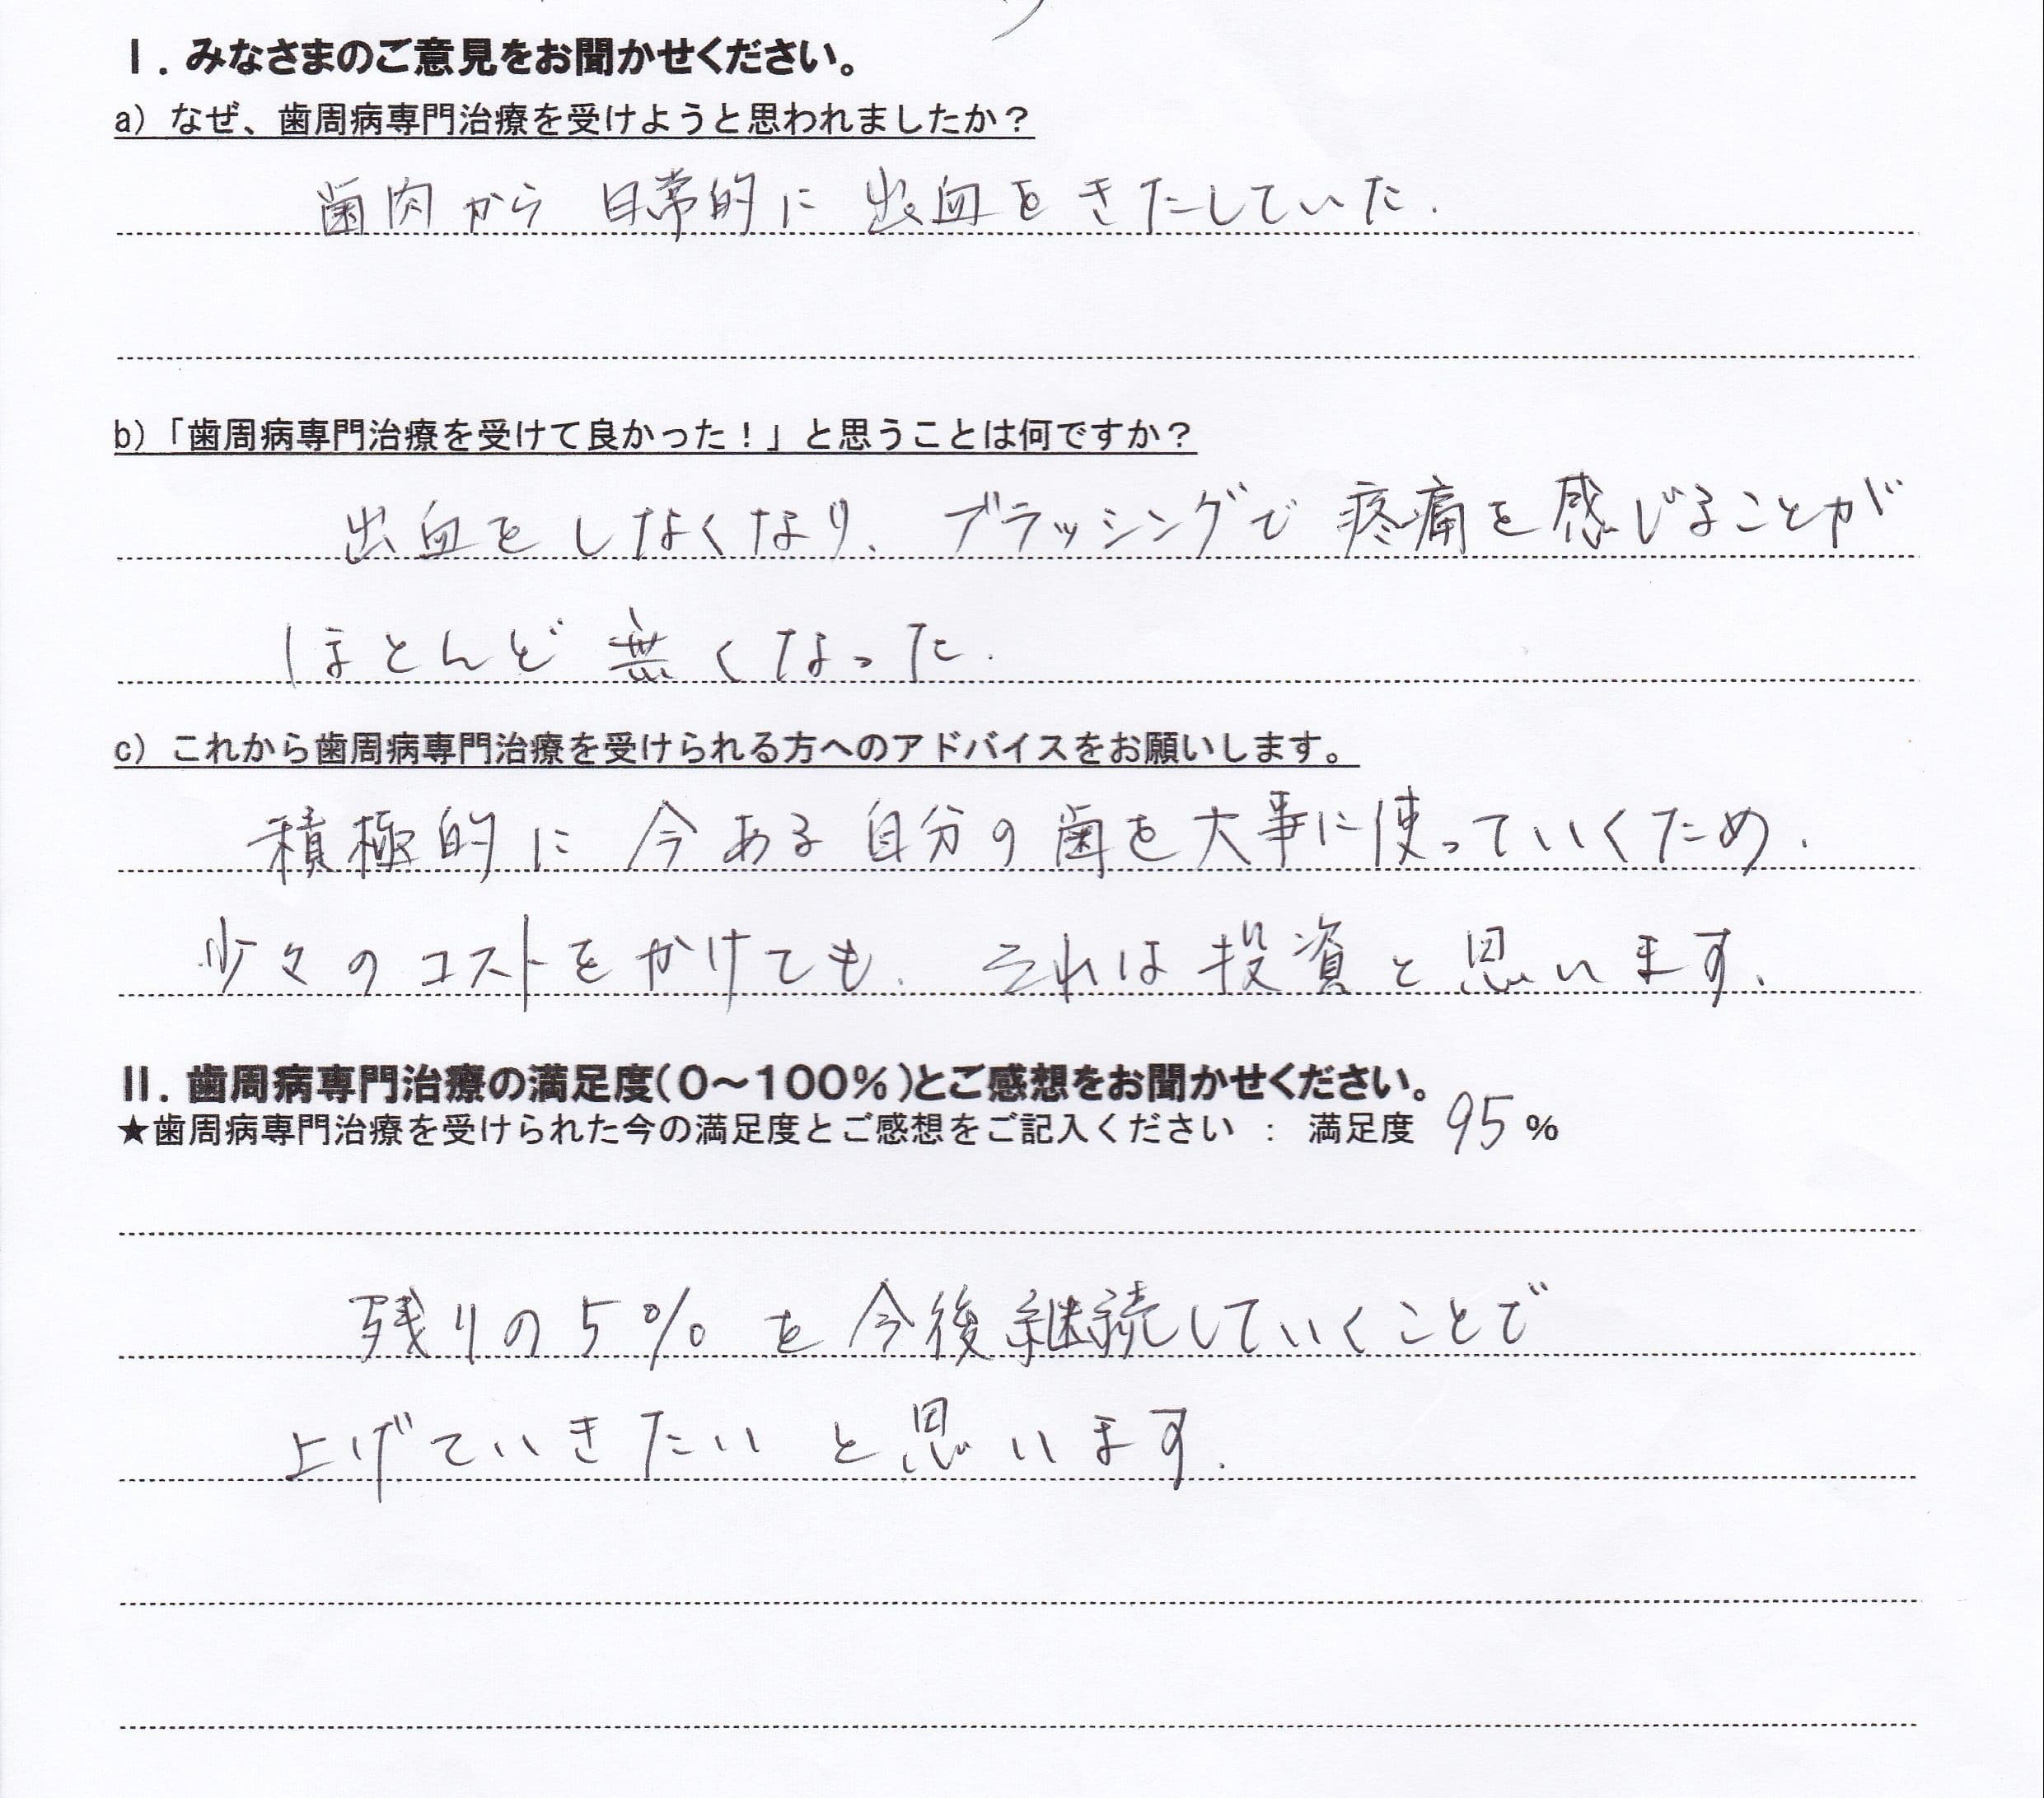 I．みなさまのご意見をお聞かせください。
a）なぜ、歯周病専門治療を受けようと思われましたか？
歯肉から日常的に出血をきたしていた．
b）「歯周病専門治療を受けて良かった！」と思うことは何ですか？
出血をしなくなり、ブラッシングで疼痛を感じることが
ほとんど無くなった．
c）これから歯周病専門治療を受けられる方へのアドバイスをお願いします。
積極的に今ある自分の歯を大事に使っていくため、
少々のコストをかけても、それは投資と思います、
II．歯周病専門治療の満足度（0～100％）とご感想をお聞かせください。
★歯周病専門治療を受けられた今の満足度とご感想をご記入ください ： 満足度 95％
残りの5％を今後継続していくことで
上げていきたいと思います．